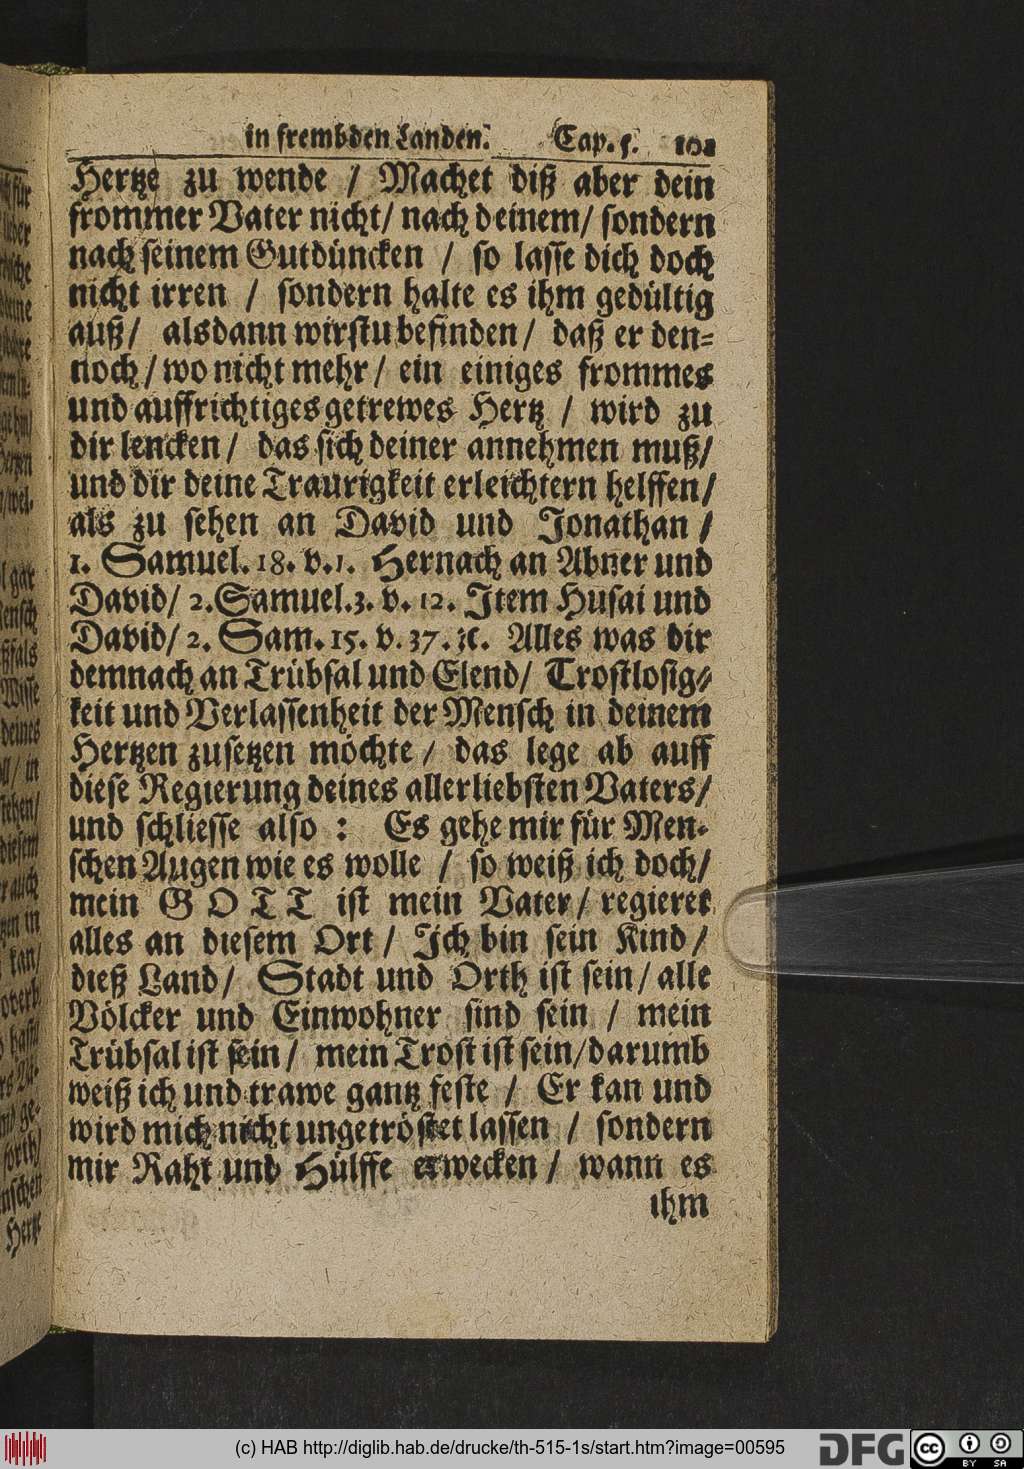 in frembden Landen. Cap. 5. 101
Hertze zu wende / Machet diß aber dein
frommer Vater nicht / nach deinem / sondern
nach seinem Gutdüncken / so lasse dich doch
nicht irren / sondern halte es ihm gedültig
auß / alsdann wirstu befinden / daß er den-
noch / wo nicht mehr / ein einiges frommes
und auffrichtiges getrewes Hertz / wird zu
dir lencken / das sich deiner annehmen muß /
und dir deine Traurigkeit erleichtern helffen /
als zu sehen an David und Jonathan /
1. Samuel. 18. v. 1. Hernach an Abner und
David / 2. Samuel. 3. v. 12. Item Husai und
David / 2. Sam. 15. v. 37. ꝛc. Alles was dir
demnach an Trübsal und Elend / Trostlosig-
keit und Verlassenheit der Mensch in deinem
Hertzen zusetzen möchte / das lege ab auff
diese Regierung deines allerliebsten Vaters /
und schliesse also : Es gehe mir für Men-
schen Augen wie es wolle / so weiß ich doch /
mein GOTT ist mein Vater / regieret
alles an diesem Ort / Ich bin sein Kind /
dieß Land / Stadt und Orth ist sein / alle
Völcker und Einwohner sind sein / mein
Trübsal ist sein / mein Trost ist sein / darumb
weiß ich und trawe gantz feste / Er kan und
wird mich nicht ungetröstet lassen / sondern
mir Raht und Hülffe erwecken / wann es
ihm
(c) HAB http://diglib.hab.de/drucke/th-515-1s/start.htm?image=00595
DFG
cc BY SA